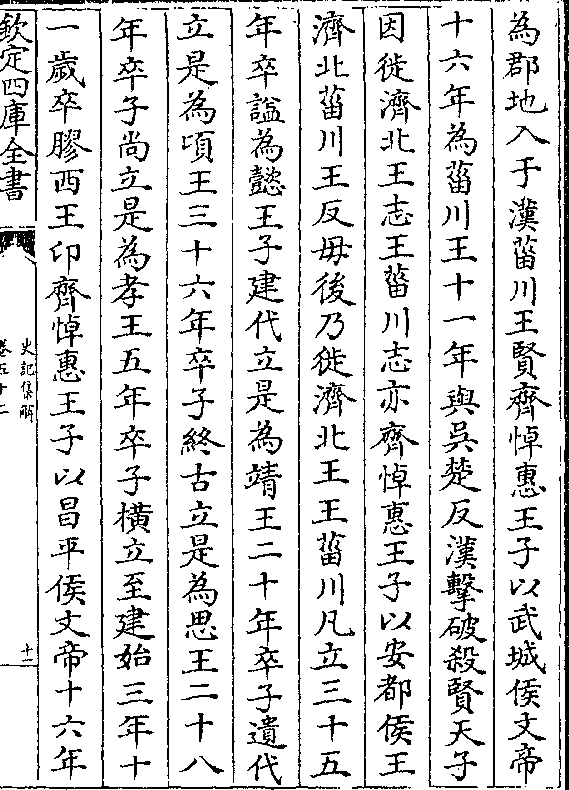 為郡地入于漢菑川王賢齊悼惠王子以武城侯文帝
十六年為菑川王十一年與吳楚反漢擊破殺賢天子
因徙濟北王志王菑川志亦齊悼惠王子以安都侯王
濟北菑川王反毋後乃徙濟北王王菑川凡立三十五
年卒諡為懿王子建代立是為靖王二十年卒子遺代
立是為頃王三十六年卒子終古立是為思王二十八
年卒子尚立是為孝王五年卒子橫立至建始三年十
一歲卒膠西王卬齊悼惠王子以昌平侯文帝十六年
欽定四庫全書
史記集解
卷五十二
十二